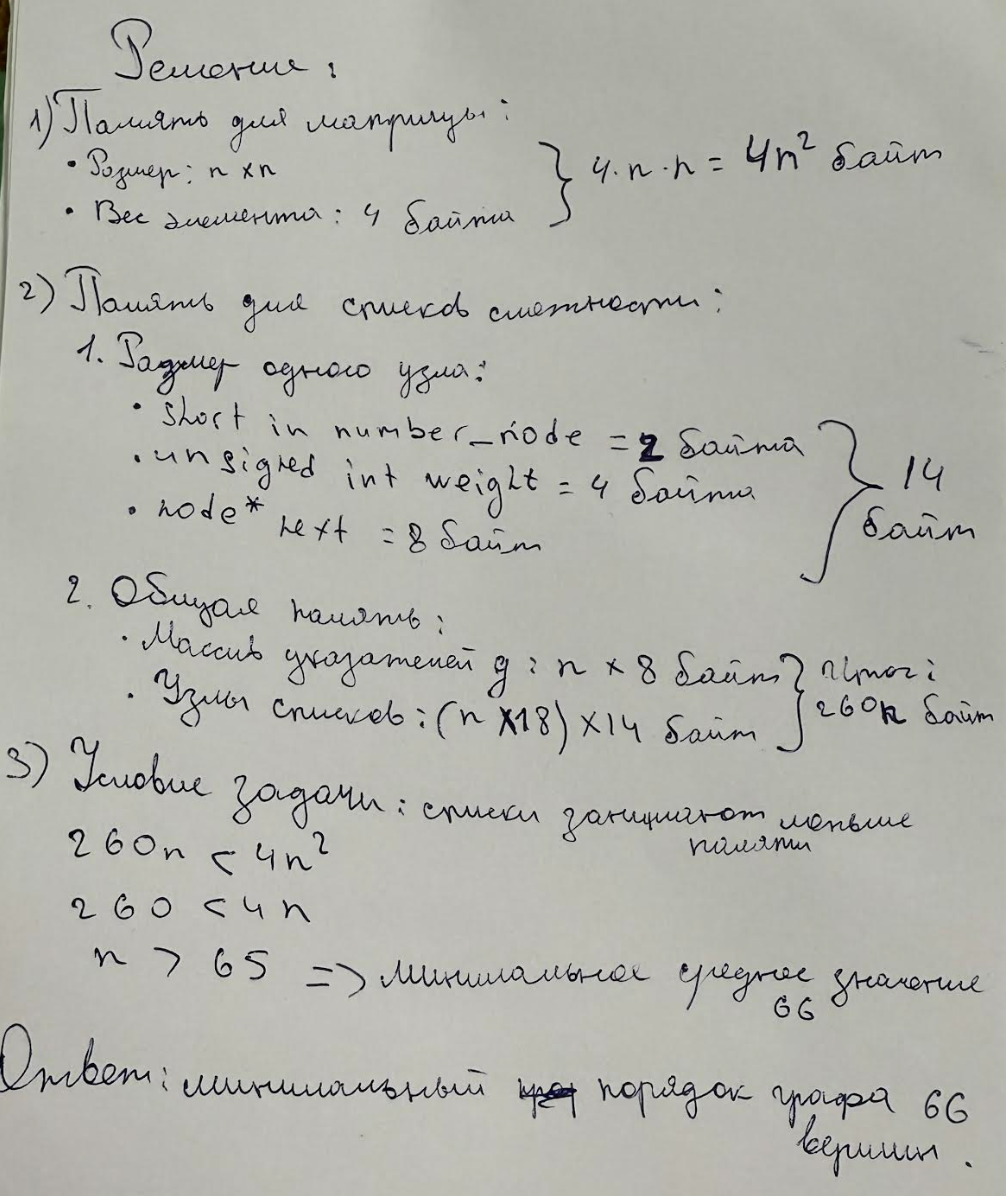 Решение:
1) Память для матрицы:
• Размер: n × n
• Вес элемента: 4 байта } 4·n·n = 4n² байт
2) Память для списков смежности:
1. Размер одного узла:
• short in number_node = 2 байта
• unsigned int weight = 4 байта
• node* next = 8 байт } 14 байт
2. Общая память:
• Массив указателей g: n × 8 байт
• Узлы списков: (n × 18) × 14 байт } Итог: 260n байт
3) Условие задачи: списки занимают меньше памяти
260n < 4n²
260 < 4n
n > 65 => минимальное среднее значение 66
Ответ: минимальный порядок графа 66 вершин.